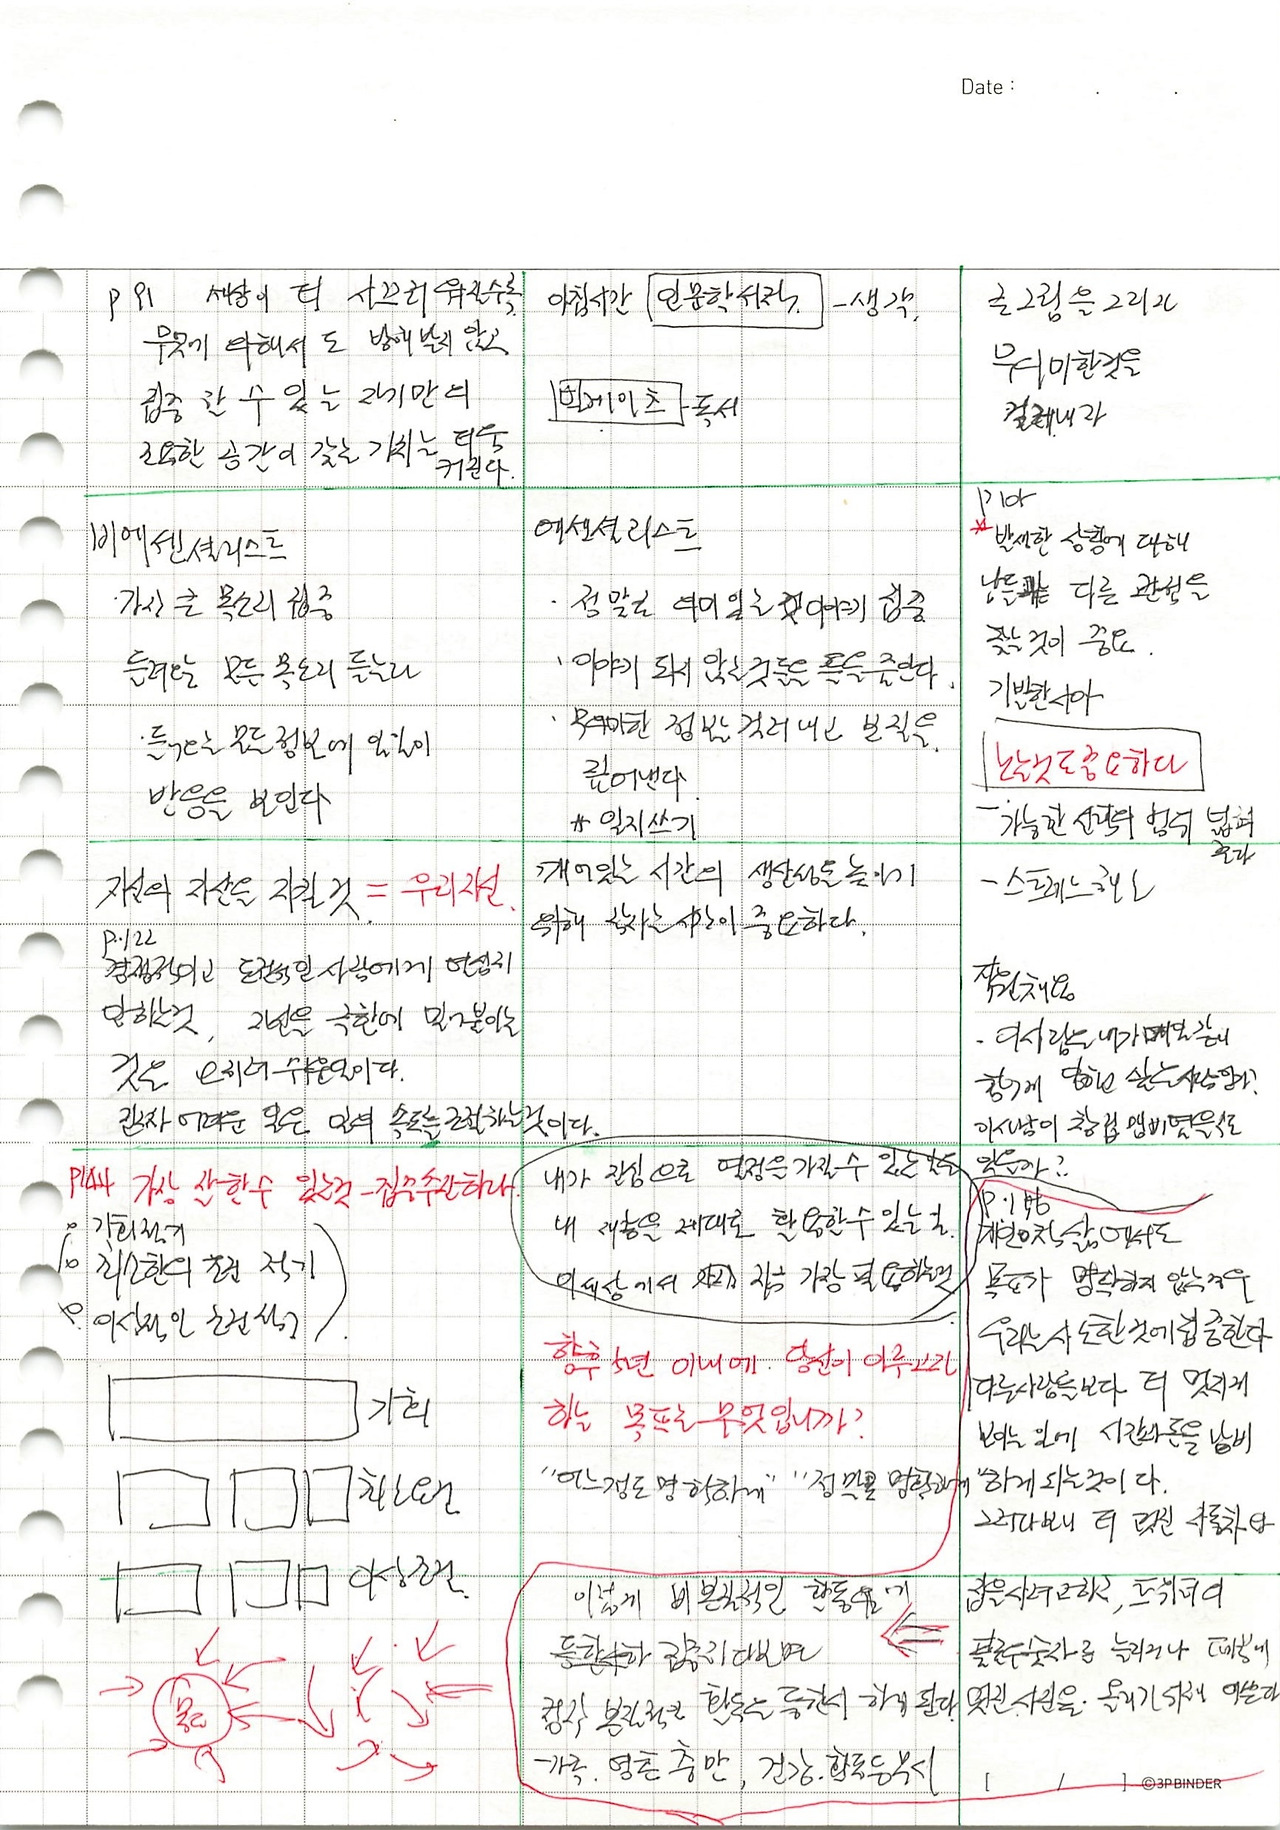 Date : . .
P 91 세상이 더 시끄러워질수록
무엇에 의해서도 방해받지 않고
집중 할 수 있는 자기만의
조용한 공간이 갖는 가치는 더욱
커진다.
아침시간 인문학서적 - 생각.
빌게이츠 - 독서
큰그림을 그리고
무의미한것을
걸러내라
비에센셜리스트
· 가장 큰 목소리 집중
들려오는 모든 목소리 듣는다
· 들려오는 모든정보에 일일이
반응을 보인다
에센셜리스트
· 정말로 의미있는 이야기 집중
· 이야기 되지 않는것들을 듣는다.
· 무의미한 정보는 걸러내고 본질을
짚어낸다.
* 일지쓰기
P 101
* 발생한 상황에 대해
남들과는 다른 관점을
찾는것이 중요.
기발한시야
노는것도중요하다
- 가능한 선택의 범위 넓혀
준다
- 스트레스해소
자신의 자산을 지킬 것 = 우리자신.
P.122
경쟁적이고 도전적인 사람에게 열심히
일하는것, 자신을 극한에 밀어붙이는
것은 오히려 쉬운일이다.
진짜 어려운 일은 일의 속도를 조절하는것이다.
깨어있는 시간의 생산성을 높이기
위해 잠자는시간이 중요하다.
직원채용
- 이사람은 내가 매일같이
함께 일하고 싶은사람인가?
이사람이 창업 멤버였을수도
있을까?
P144 가장 잘할수 있는것 - 집중수산하라.
기회적기
최소한의 조건 적기
이상적인 조건적기
기회
최소요건
이상조건
목표
내가 진심으로 열정을가질수 있는것은
내 재능을 제대로 활용할수있는것.
이세상에서 지금 가장 필요한것
향후 5년 이내에 당신이 이루고자
하는 목표는 무엇입니까?
"어느정도 명확하게" "정말로 명확하게"
P.156
개인의적 삶에서도
목표가 명확하지 않는경우
우리는 사소한것에집중한다
다른사람들보다 더 멋지게
보이는 일에 시간과돈을 낭비
하게 되는것이다.
그러다보니 더 멋진 자동차나
집을사려고하고, 트위터의
팔로우숫자를 늘리거나 페북에
멋진 사진을 올리기위해 애쓴다
이렇게 비본질적인 활동들에
집중하다보면
정작 본질적인 활동은 등한시 하게 된다
- 가족. 영혼 충만, 건강.활동등무시
[ / ] ©3PBINDER